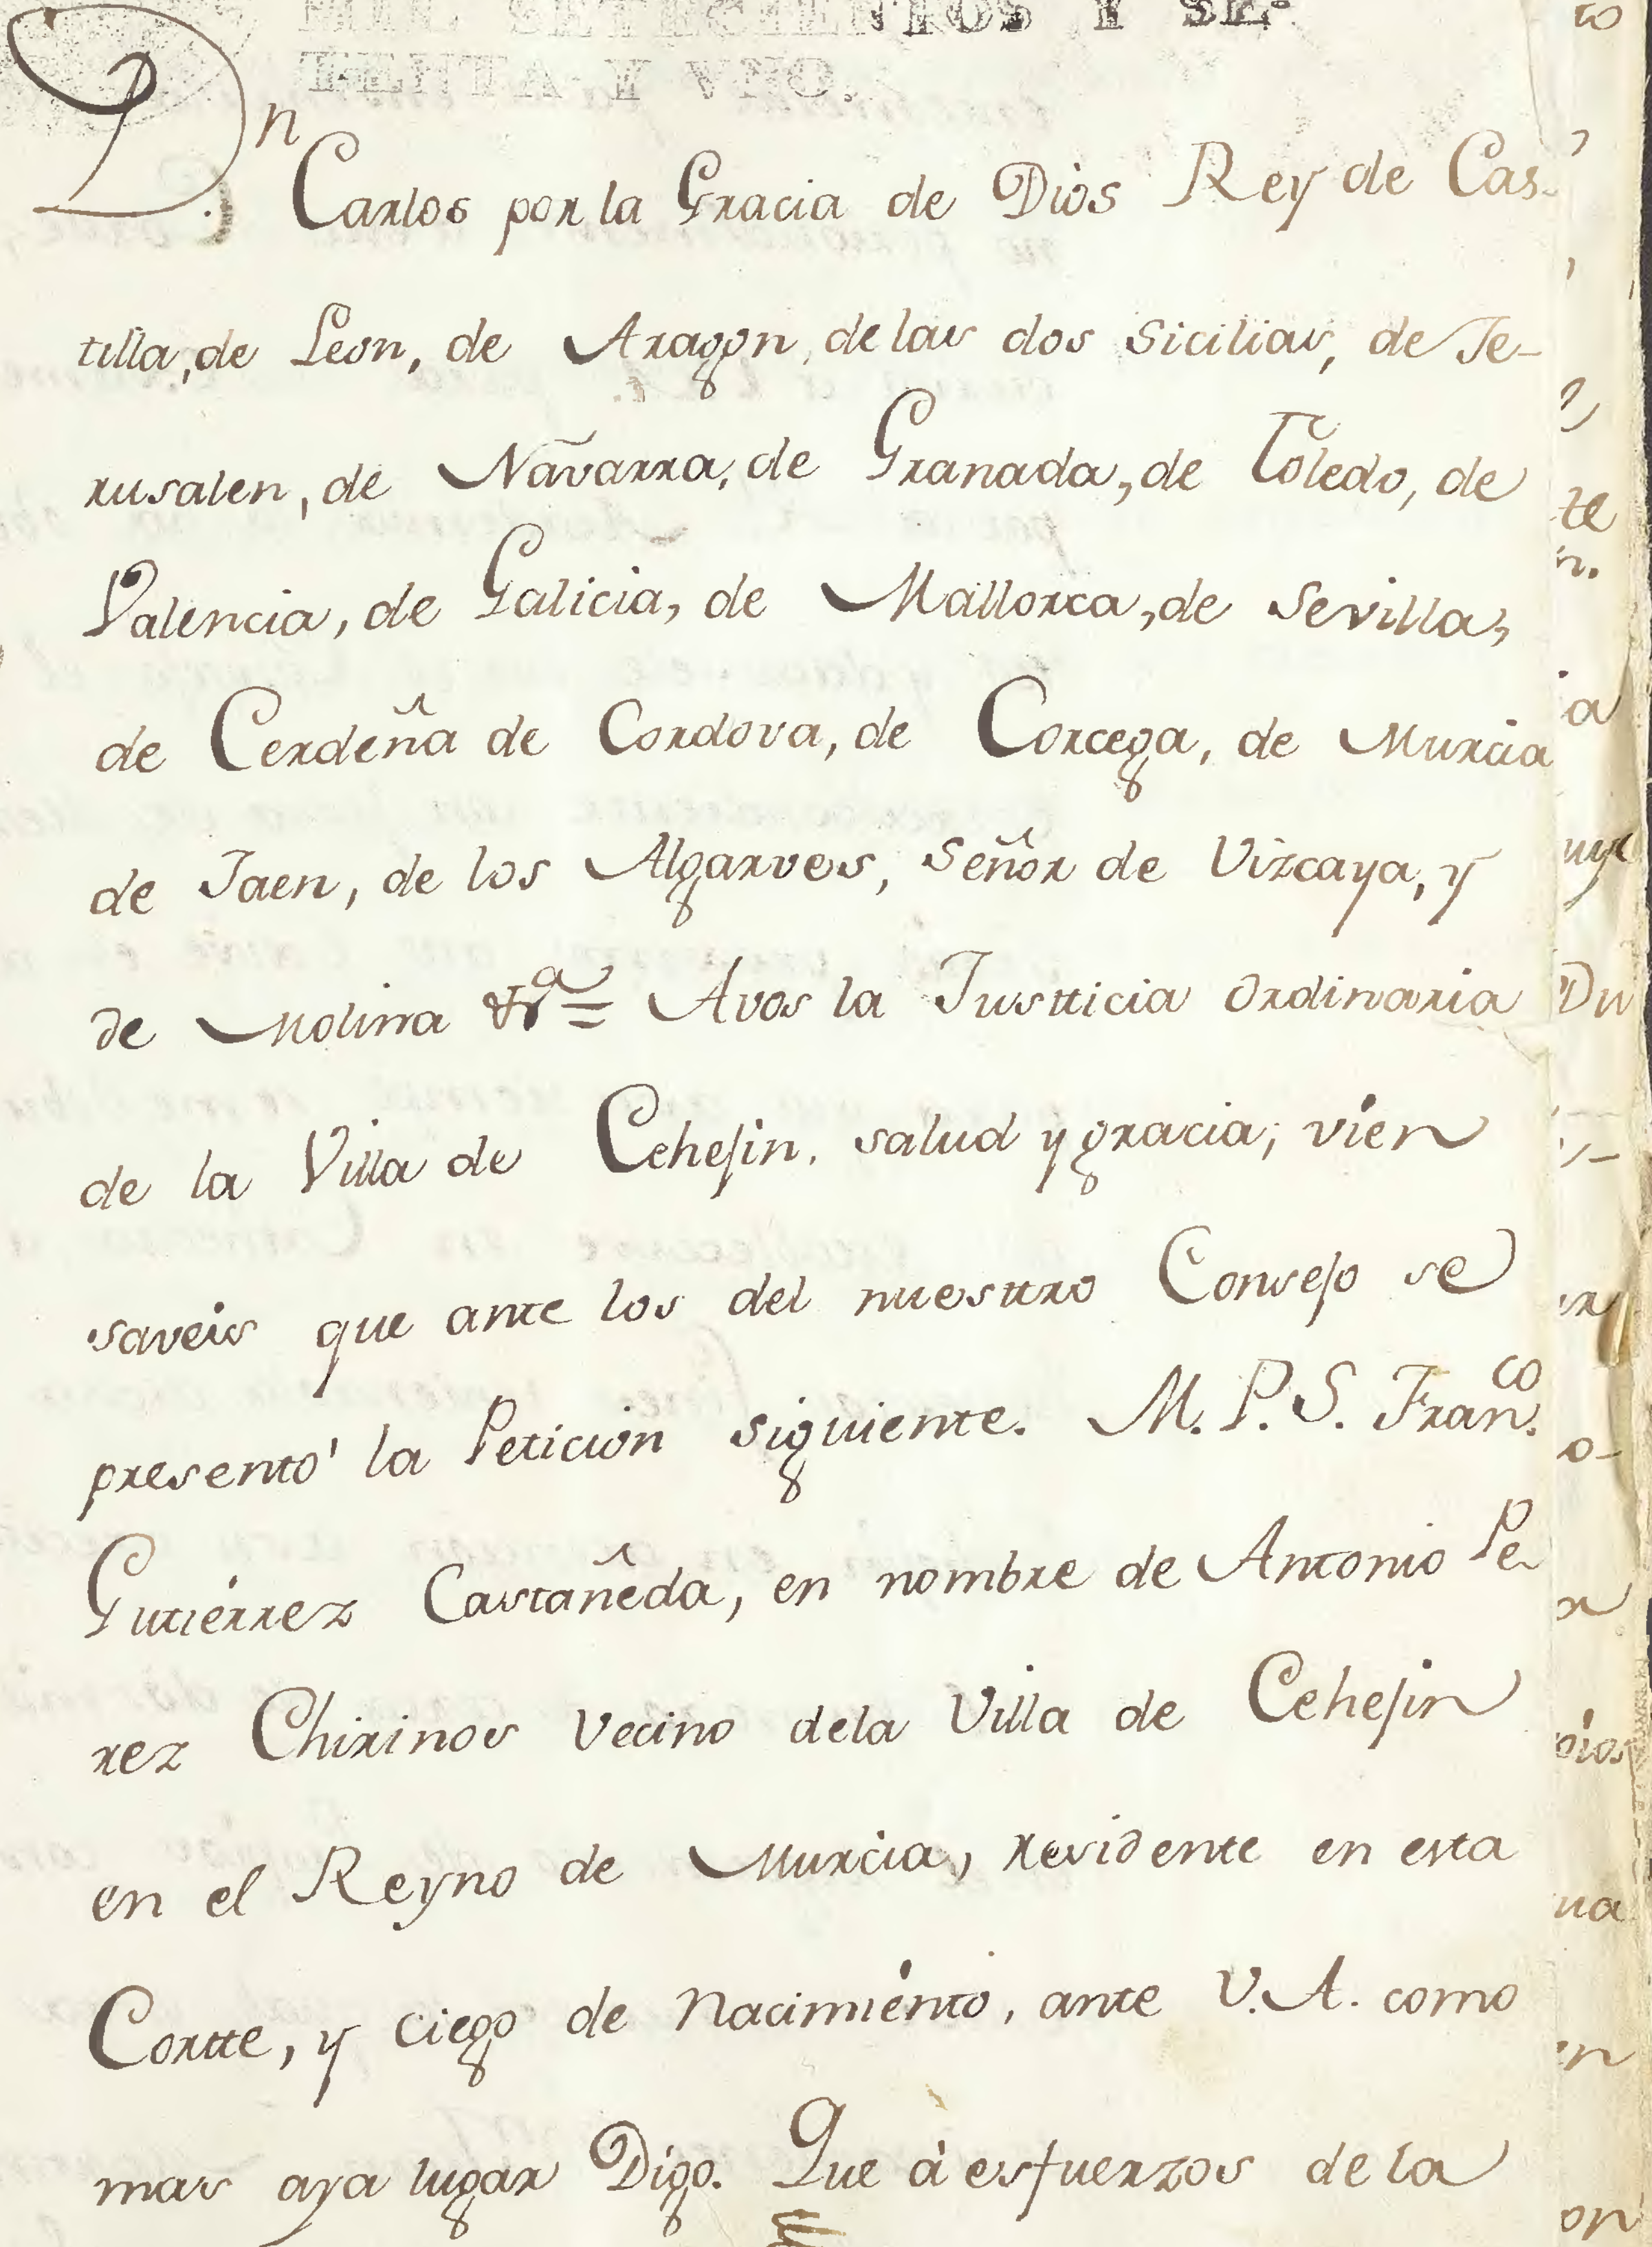 MIL SETECIENTOS Y SE-
TENTA Y VNO.
Dn
Carlos por la Gracia de Dios Rey de Cas-
tilla, de Leon, de Aragon, delas dos Sicilias, de Je-
rusalen, de Navarra, de Granada, de Toledo, de
Valencia, de Galicia, de Mallorca, de Sevilla,
de Cerdeña de Cordova, de Corcega, de Murcia
de Jaen, de los Algarves, Señor de Vizcaya, y
de Molina &ra = Avos la Justticia Ordinaria
de la Villa de Cehejin, salud y gracia; vien
saveis que ante los del nuesttro Consejo se
presento' la Peticion siguiente. M. P. S. Franco.
Gutiérrez Castañeda, en nombre de Antonio Pe-
rez Chirinos Vecino dela Villa de Cehejin
en el Reyno de Murcia, residente en esta
Cortte, y ciego de Nacimiénto, ante V. A. como
mas aya lugar Digo. Que à esfuerzos de la